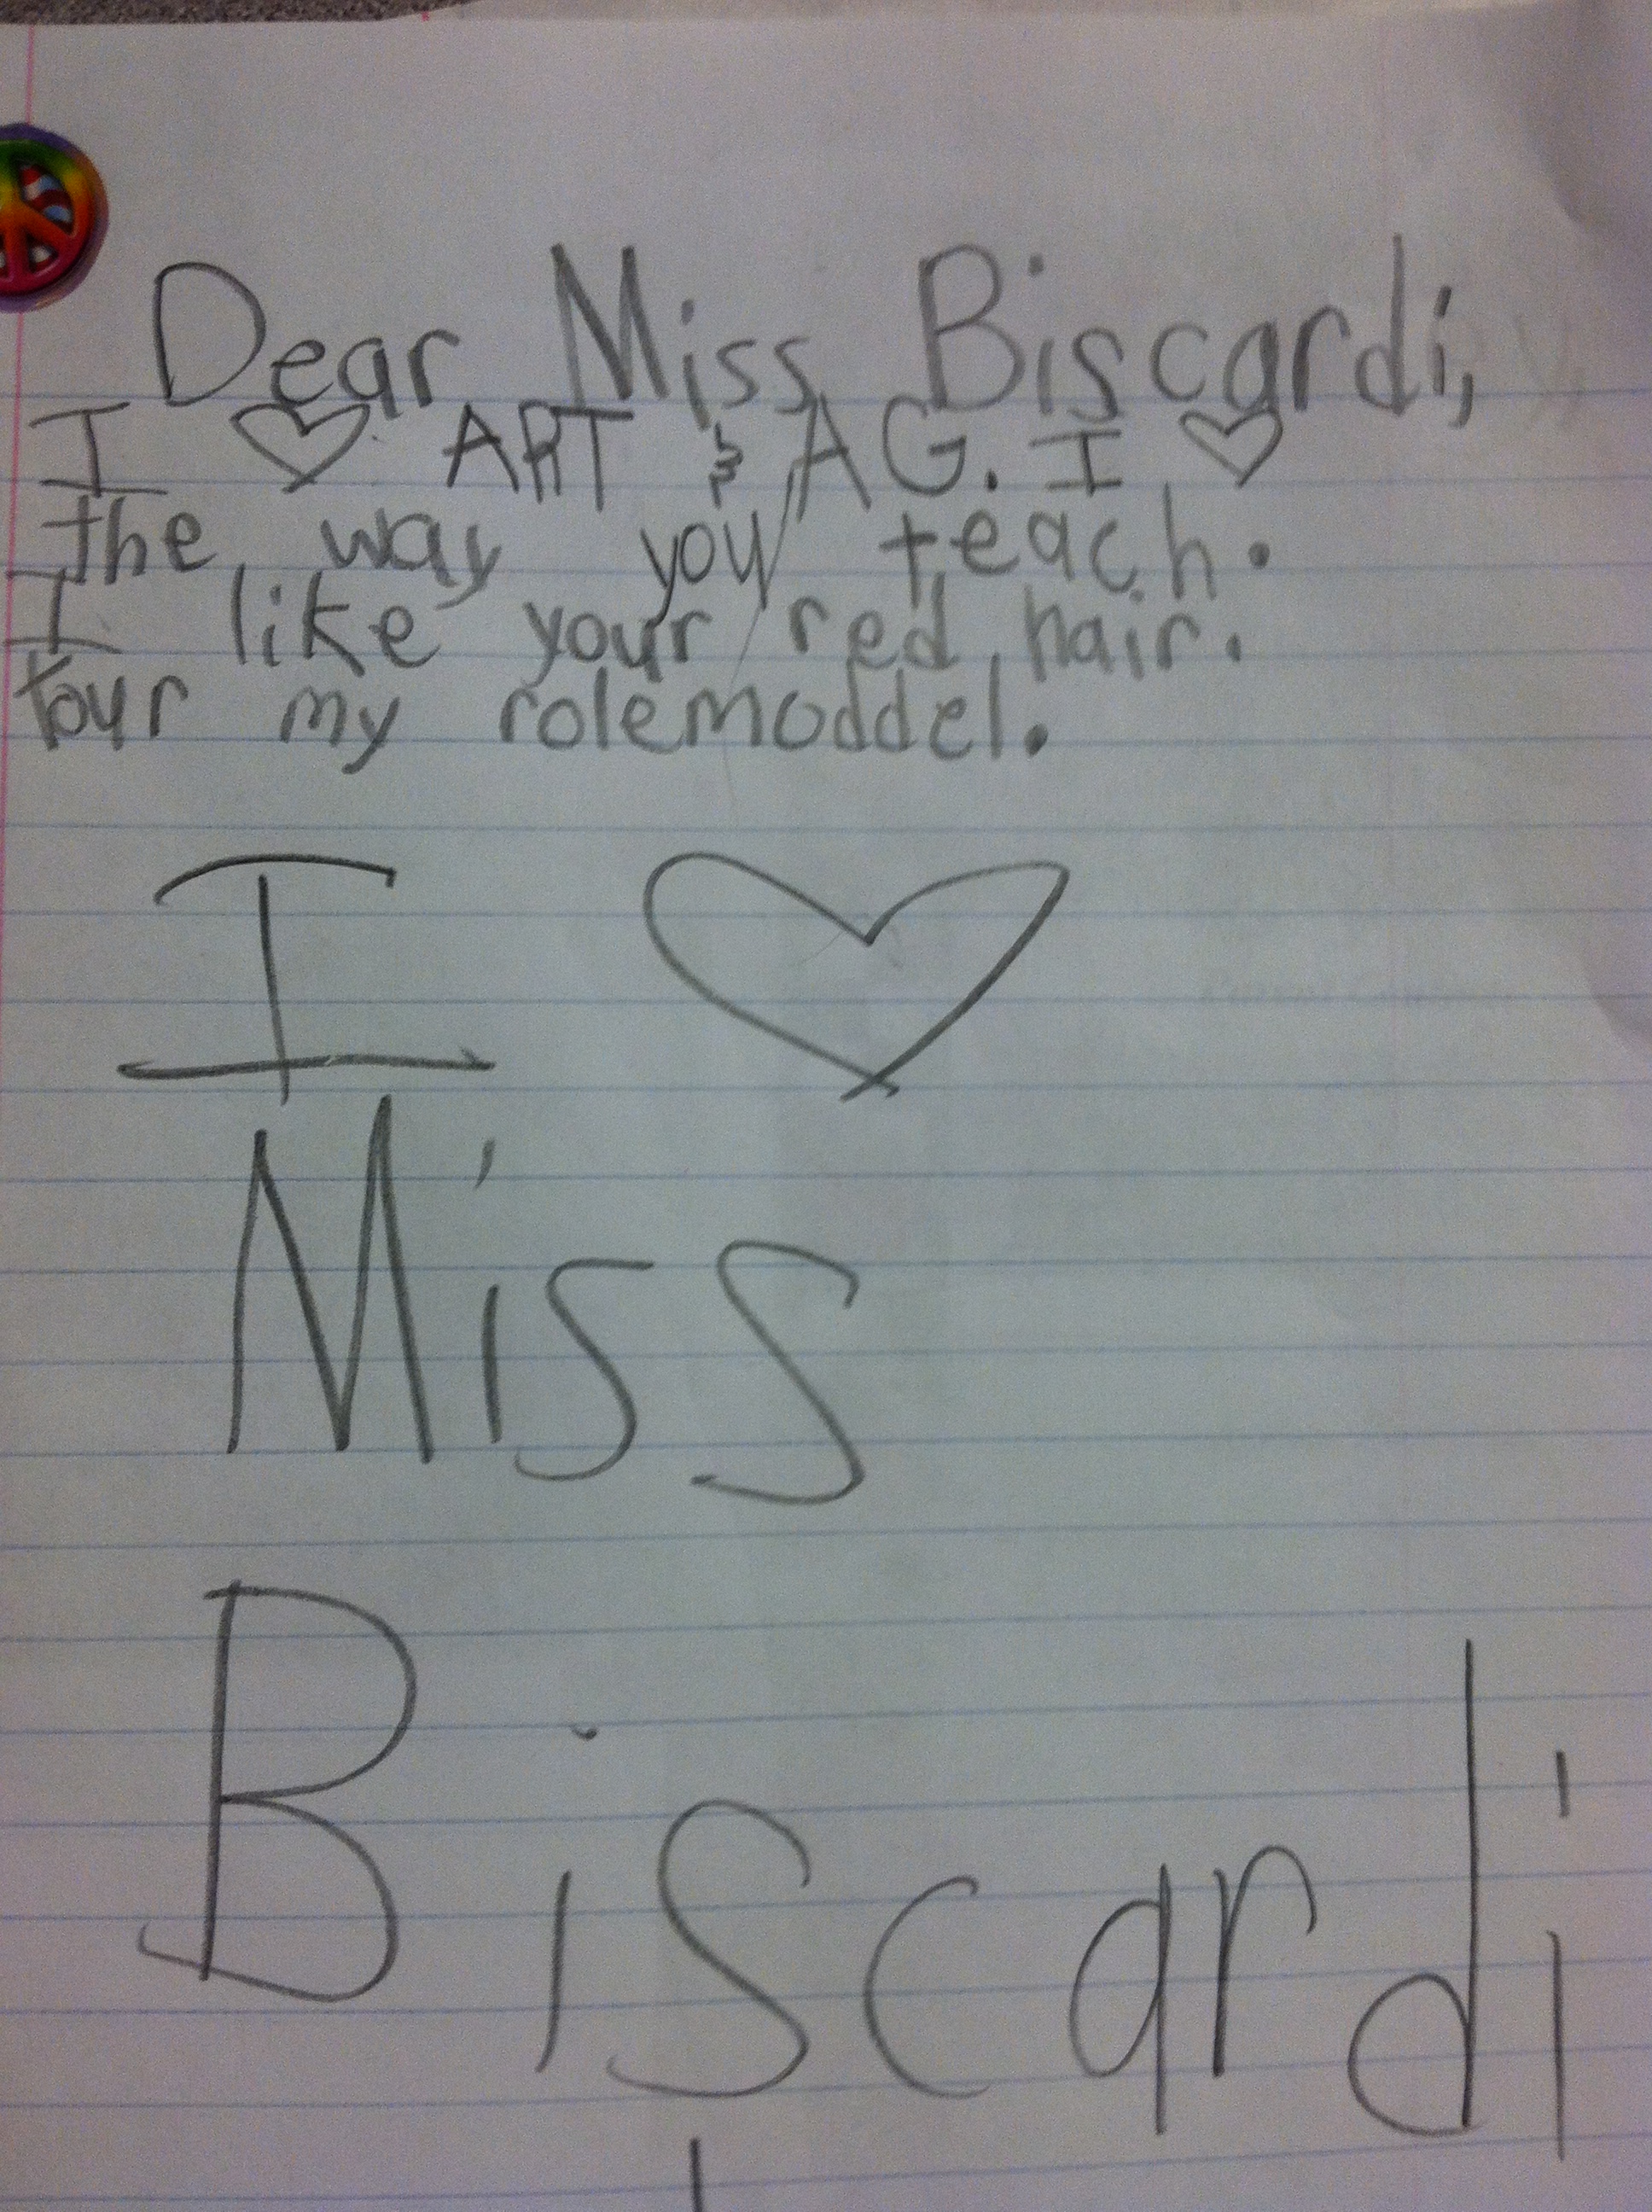 Dear Miss Biscardi,
I ♡ ART & AG. I ♡
the way you teach.
I like your red hair.
Your my rolemoddel.
I ♡
Miss
Biscardi